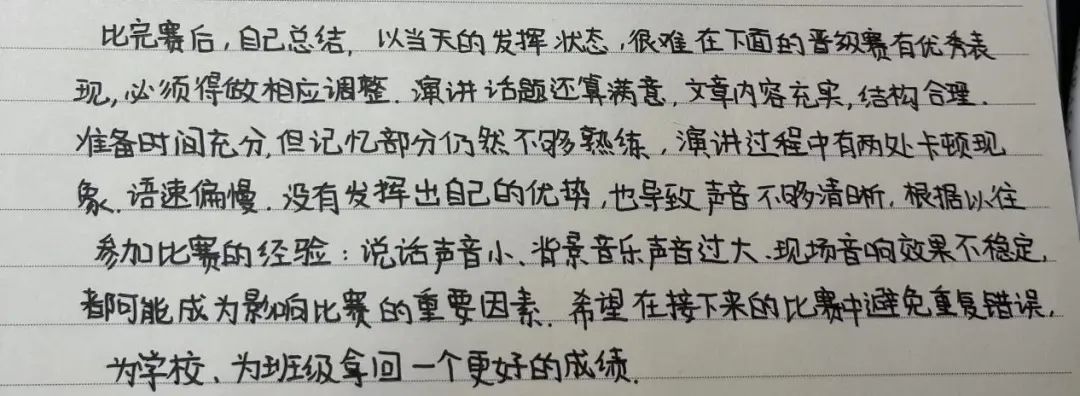 比完赛后,自己总结,以当天的发挥状态,很难在下面的晋级赛有优秀表
现,必须得做相应调整.演讲话题还算满意,文章内容充实,结构合理.
准备时间充分,但记忆部分仍然不够熟练,演讲过程中有两处卡顿现
象.语速偏慢.没有发挥出自己的优势,也导致声音不够清晰,根据以往
参加比赛的经验:说话声音小、背景音乐声音过大、现场音响效果不稳定,
都可能成为影响比赛的重要因素.希望在接下来的比赛中避免重复错误,
为学校、为班级拿回一个更好的成绩.